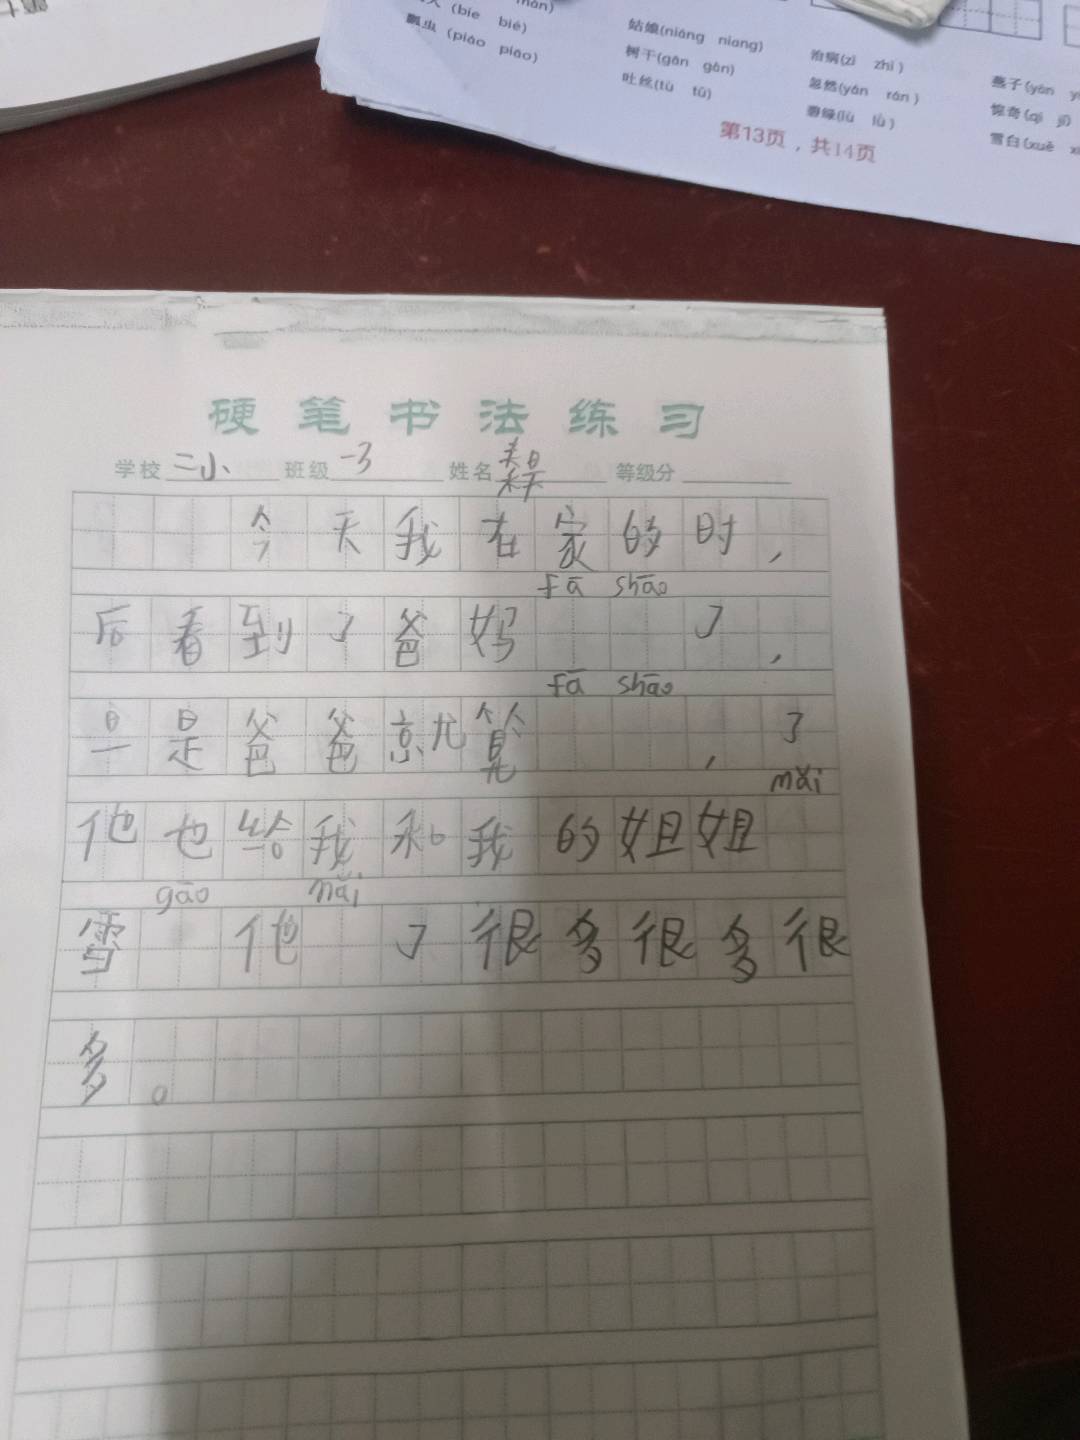 (bié bié)
瓢虫(piáo piāo)
姑娘(niáng niang)
树干(gān gàn)
吐丝(tù tǔ)
治病(zì zhì)
忽然(yán rán)
碧绿(lù lǜ)
燕子(yàn
惊奇(qí jī)
雪白(xuě
第13页,共14页
硬笔书法练习
学校 二小 班级 一3 姓名 等级分
今天我在家的时,
fā shāo
后看到了爸妈 了,
fā shāo
旦是爸爸就算 ,了
mǎi
他也给我和我的姐姐
gāo mǎi
雪 他 了很多很多很
多。